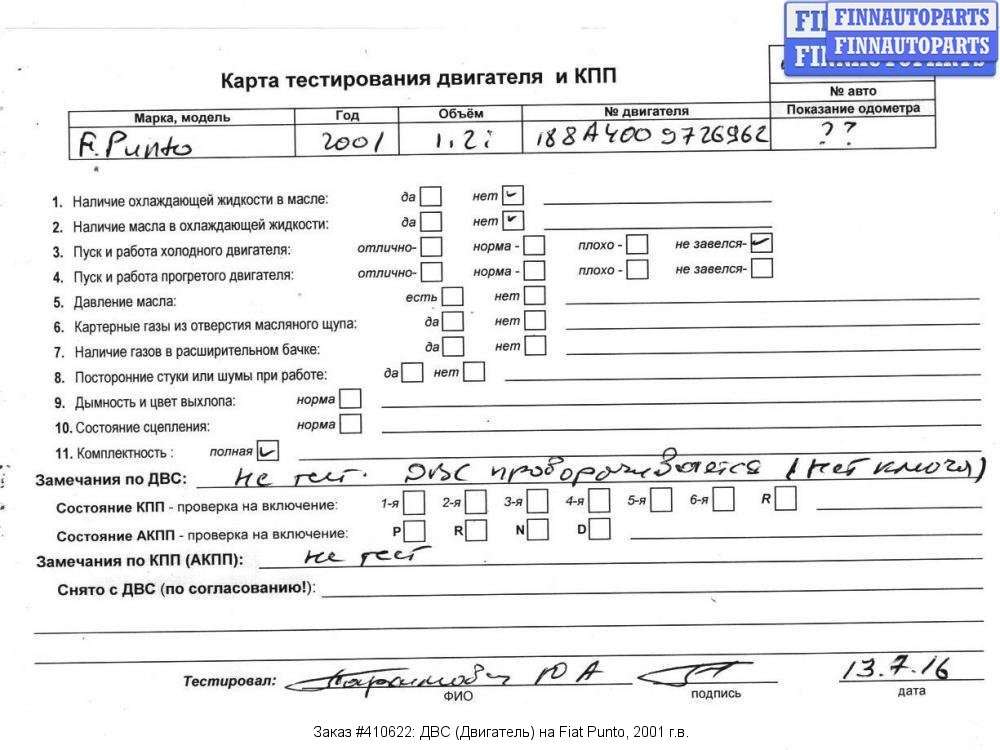 FINNAUTOPARTS
FINNAUTOPARTS
Карта тестирования двигателя и КПП
№ авто
Марка, модель Год Объём № двигателя Показание одометра
F. Punto 2001 1,2i 188A400 9726962 ??
1. Наличие охлаждающей жидкости в масле: да нет
2. Наличие масла в охлаждающей жидкости: да нет
3. Пуск и работа холодного двигателя: отлично- норма - плохо - не завелся-
4. Пуск и работа прогретого двигателя: отлично- норма - плохо - не завелся-
5. Давление масла: есть нет
6. Картерные газы из отверстия масляного щупа: да нет
7. Наличие газов в расширительном бачке: да нет
8. Посторонние стуки или шумы при работе: да нет
9. Дымность и цвет выхлопа: норма
10. Состояние сцепления: норма
11. Комплектность : полная
Замечания по ДВС: не тест. ДВС проворачивается (нет ключа)
Состояние КПП - проверка на включение: 1-я 2-я 3-я 4-я 5-я 6-я R
Состояние АКПП - проверка на включение: P R N D
Замечания по КПП (АКПП): не тест
Снято с ДВС (по согласованию!):
Тестировал: Ю А 13.7.16
ФИО подпись дата
Заказ #410622: ДВС (Двигатель) на Fiat Punto, 2001 г.в.